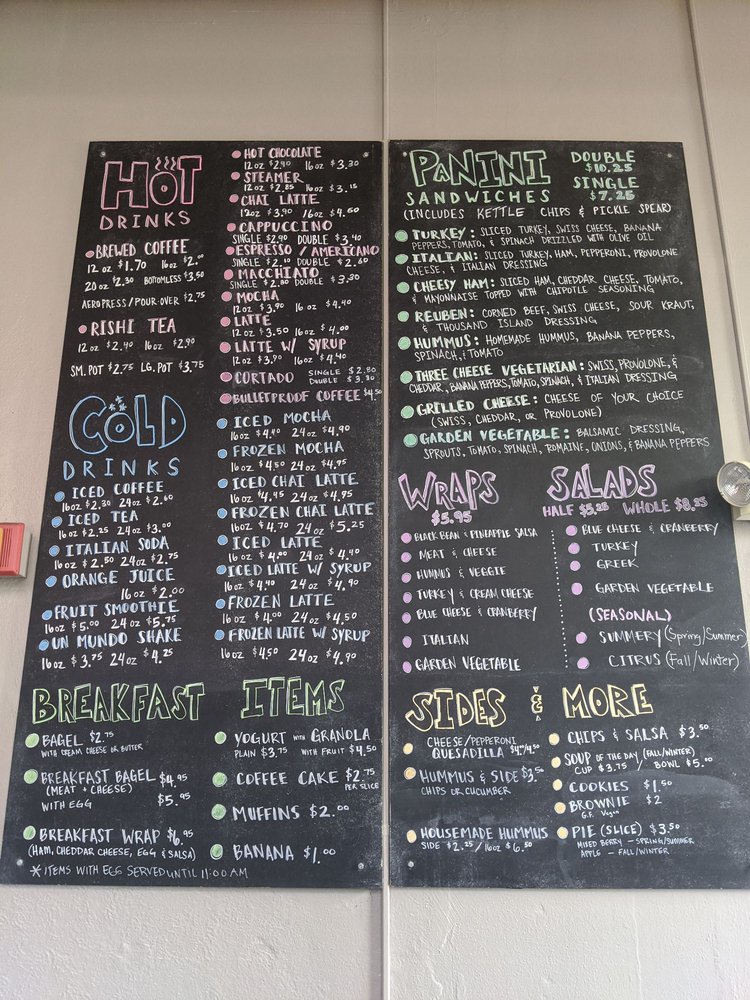 HOT
DRINKS
BREWED COFFEE
12 oz $1.70 16 oz $2.00
20 oz $2.30 BOTTOMLESS $3.50
AEROPRESS/POUR-OVER $2.75
RISHI TEA
12 oz $2.40 16 oz $2.90
SM. POT $2.75 LG. POT $3.75
HOT CHOCOLATE
12 oz $2.90 16 oz $3.30
STEAMER
12 oz $2.85 16 oz $3.15
CHAI LATTE
12oz $3.90 16oz $4.50
CAPPUCCINO
SINGLE $2.90 DOUBLE $3.40
ESPRESSO / AMERICANO
SINGLE $2.10 DOUBLE $2.60
MACCHIATO
SINGLE $2.80 DOUBLE $3.30
MOCHA
12 oz $3.90 16 oz $4.40
LATTE
12 oz $3.50 16 oz $4.00
LATTE W/ SYRUP
12 oz $3.90 16 oz $4.40
CORTADO SINGLE $2.80
DOUBLE $3.30
BULLETPROOF COFFEE $4.50
COLD
DRINKS
ICED COFFEE
16oz $2.30 24oz $2.60
ICED TEA
16 oz $2.25 24oz $3.00
ITALIAN SODA
16 oz $2.50 24oz $2.75
ORANGE JUICE
16 oz $2.00
FRUIT SMOOTHIE
16 oz $5.00 24 oz $5.75
UN MUNDO SHAKE
16 oz $3.75 24 oz $4.25
ICED MOCHA
16oz $4.40 24oz $4.90
FROZEN MOCHA
16 oz $4.50 24oz $4.95
ICED CHAI LATTE
16oz $4.45 24oz $4.95
FROZEN CHAI LATTE
16 oz $4.70 24oz $5.25
ICED LATTE
16 oz $4.00 24 oz $4.40
ICED LATTE W/ SYRUP
16 oz $4.40 24oz $4.90
FROZEN LATTE
16 oz $4.00 24 oz $4.50
FROZEN LATTE W/ SYRUP
16oz $4.50 24oz $4.90
BREAKFAST ITEMS
BAGEL $2.75
WITH CREAM CHEESE OR BUTTER
BREAKFAST BAGEL $4.95
(MEAT + CHEESE)
WITH EGG $5.95
BREAKFAST WRAP $6.95
(HAM, CHEDDAR CHEESE, EGG & SALSA)
* ITEMS WITH EGG SERVED UNTIL 11:00 AM
YOGURT WITH GRANOLA
PLAIN $3.75 WITH FRUIT $4.50
COFFEE CAKE $2.75
PER SLICE
MUFFINS $2.00
BANANA $1.00
PANINI
SANDWICHES
DOUBLE
$10.25
SINGLE
$7.25
(INCLUDES KETTLE CHIPS & PICKLE SPEAR)
TURKEY: SLICED TURKEY, SWISS CHEESE, BANANA
PEPPERS, TOMATO, & SPINACH DRIZZLED WITH OLIVE OIL
ITALIAN: SLICED TURKEY, HAM, PEPPERONI, PROVOLONE
CHEESE, & ITALIAN DRESSING
CHEESY HAM: SLICED HAM, CHEDDAR CHEESE, TOMATO,
& MAYONNAISE TOPPED WITH CHIPOTLE SEASONING
REUBEN: CORNED BEEF, SWISS CHEESE, SOUR KRAUT,
& THOUSAND ISLAND DRESSING
HUMMUS: HOMEMADE HUMMUS, BANANA PEPPERS,
SPINACH, & TOMATO
THREE CHEESE VEGETARIAN: SWISS, PROVOLONE, &
CHEDDAR, BANANA PEPPERS, TOMATO, SPINACH, & ITALIAN DRESSING
GRILLED CHEESE: CHEESE OF YOUR CHOICE
(SWISS, CHEDDAR, OR PROVOLONE)
GARDEN VEGETABLE: BALSAMIC DRESSING,
SPROUTS, TOMATO, SPINACH, ROMAINE, ONIONS, & BANANA PEPPERS
WRAPS
$5.95
BLACK BEAN & PINEAPPLE SALSA
MEAT & CHEESE
HUMMUS & VEGGIE
TURKEY & CREAM CHEESE
BLUE CHEESE & CRANBERRY
ITALIAN
GARDEN VEGETABLE
SALADS
HALF $5.25 WHOLE $8.25
BLUE CHEESE & CRANBERRY
TURKEY
GREEK
GARDEN VEGETABLE
(SEASONAL)
SUMMERY (Spring/Summer)
CITRUS (Fall/Winter)
SIDES & MORE
CHEESE/PEPPERONI
QUESADILLA $4.00/4.50
HUMMUS & SIDE $3.50
CHIPS OR CUCUMBER
HOUSEMADE HUMMUS
SIDE $2.25/16oz $6.50
CHIPS & SALSA $3.50
SOUP OF THE DAY (FALL/WINTER)
CUP $3.75 / BOWL $5.00
COOKIES $1.50
BROWNIE $2
G.F. Vegan
PIE (SLICE) $3.50
MIXED BERRY - SPRING/SUMMER
APPLE - FALL/WINTER